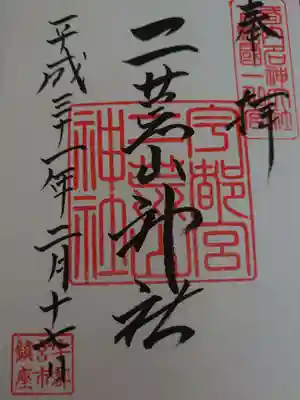 奉拝
二荒山神社
宇都宮
二荒山
神社
平成三十一年二月十七日
宇都
宮市
鎮座